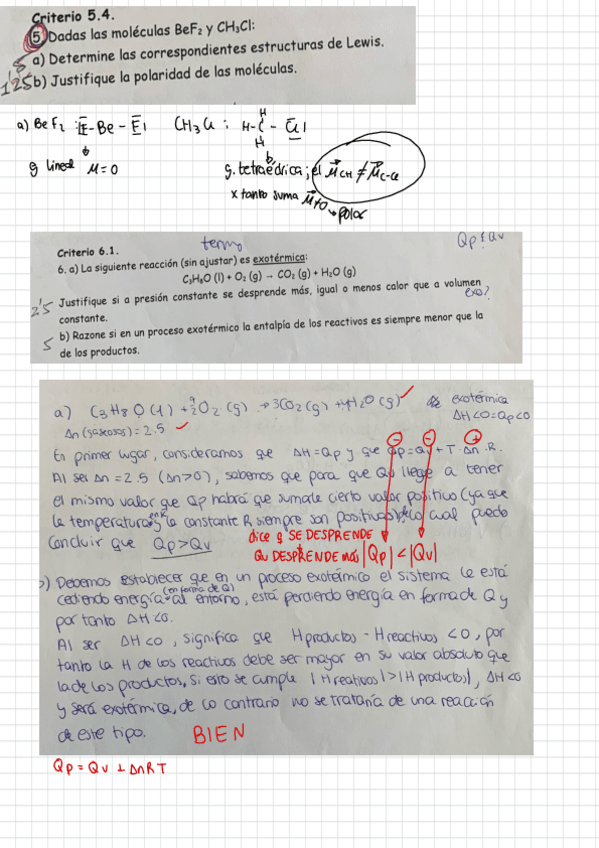 Criterio 5.4.
5 Dadas las moléculas BeF₂ y CH₃Cl:
a) Determine las correspondientes estructuras de Lewis.
1'25 b) Justifique la polaridad de las moléculas.
a) BeF₂ : F - Be - F CH₃Cl : H - C - Cl
H
H
g lineal μ = 0
g. tetraédrica ; el μ CH ≠ μ C-Cl
x tanto suma μ ≠ 0 → polar
termo
Qp y Qv
Criterio 6.1.
6. a) La siguiente reacción (sin ajustar) es exotérmica:
C₃H₈O (l) + O₂ (g) → CO₂ (g) + H₂O (g)
exo?
2'5 Justifique si a presión constante se desprende más, igual o menos calor que a volumen
constante.
5 b) Razone si en un proceso exotérmico la entalpía de los reactivos es siempre menor que la
de los productos.
a) C₃H₈O (l) + 9/2 O₂ (g) → 3CO₂ (g) + 4H₂O (g) exotérmica
Δn (gaseosos) = 2.5 ΔH<0 = Qp<0
En primer lugar, consideramos que ΔH = Qp y que Qp = Qv + T · Δn · R.
Al ser Δn = 2.5 (Δn>0), sabemos que para que Qv llegue a tener
el mismo valor que Qp habrá que sumarle cierto valor positivo (ya que
la temperatura y la constante R siempre son positivas), lo cual puedo
concluir que Qp > Qv
dice q SE DESPRENDE
Qv DESPRENDE más |Qp| < |Qv|
b) Debemos establecer que en un proceso exotérmico el sistema le está
cediendo energía (en forma de Q) al entorno, está perdiendo energía en forma de Q y
por tanto ΔH<0.
Al ser ΔH<0, significa que H productos - H reactivos < 0, por
tanto la H de los reactivos debe ser mayor en su valor absoluto que
la de los productos. Si esto se cumple |H reactivos| > |H productos|, ΔH<0
y será exotérmica, de lo contrario no se trataría de una reacción
de este tipo. BIEN
Qp = Qv + ΔnRT